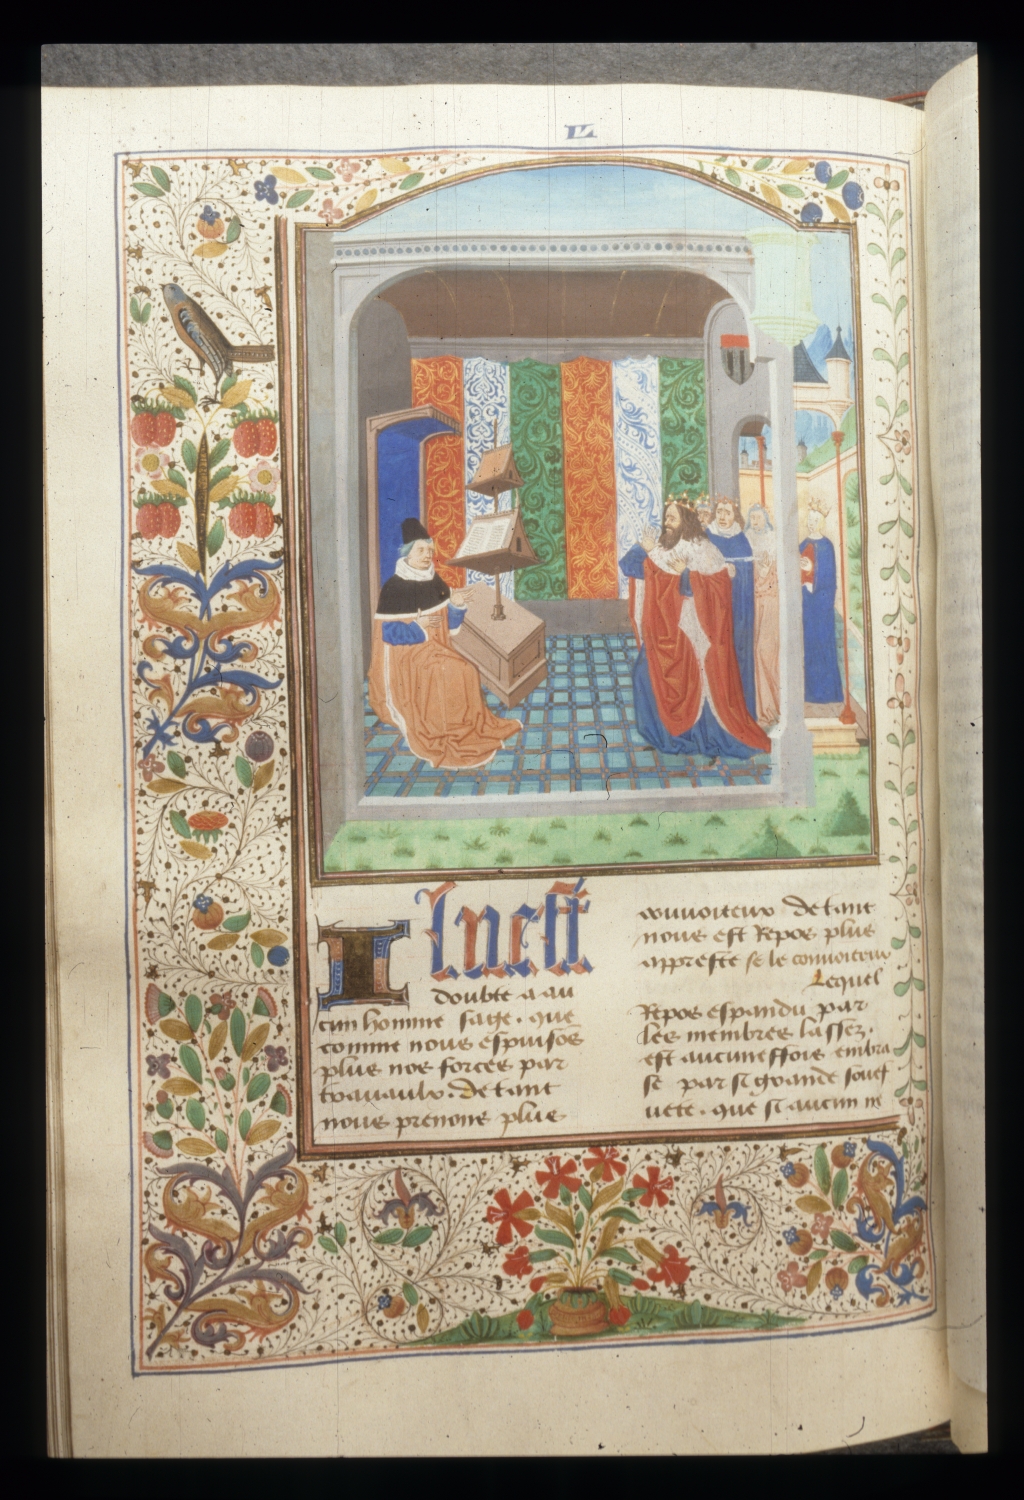 Il nest
doubte a au
cun homme sage. que
comme nous espuisos
plus nos forces par
travaulx. de tant
nous prenons plus
convoiteux de tant
nous est Repos plus
appreste se le convoiteux
Lequel
Repos espandu par
les membres lassez.
est aucuneffois embra
se par si grande souef
vete. que si aucun